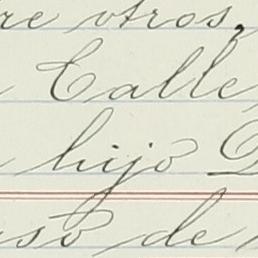 re otros,
Calle
hijo D
usto de